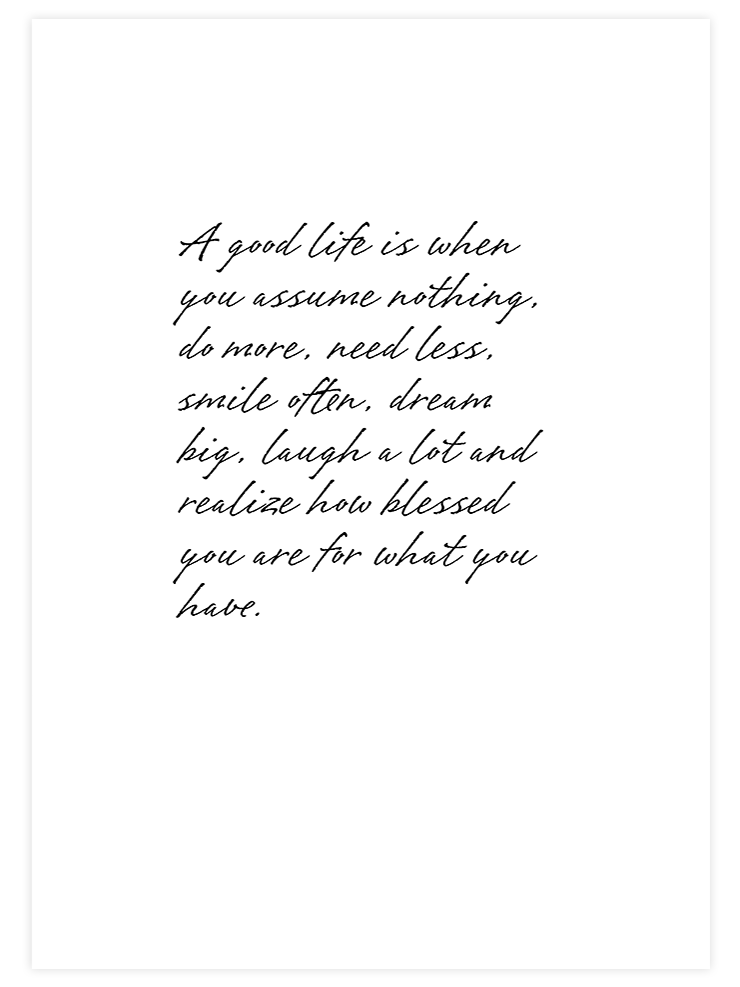 A good life is when
you assume nothing,
do more, need less,
smile often, dream
big, laugh a lot and
realize how blessed
you are for what you
have.